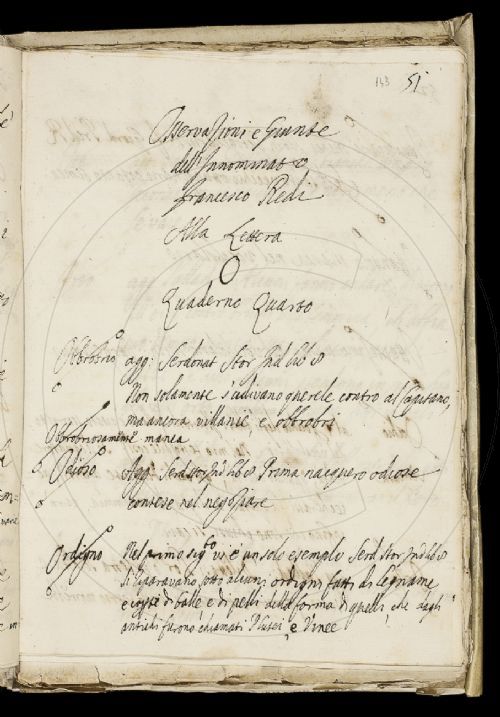 143 51
Osservazioni e Giunte
dell'Innominato
Francesco Redi
Alla Lettera
O
Quaderno Quarto
Obbrobrio agg: Serdonat Stor Ind lib 8
Non solamente s'udivano querele contro al Capitano,
ma ancora villanie e obbrobri
Obbrobriosamente manca
Odioso Agg: Serd stor Ind lib 8 Prima nacquero odiose
contese nel negoziare
Ordigno Nel primo sigto vi è un solo esemplo Serd Stor Ind lib 8
Si riparavano sotto alcuni ordigni fatti di legname
e di balle e di pelli della forma di quelli, che dagli
antichi furono chiamati Plutei, e Vinee